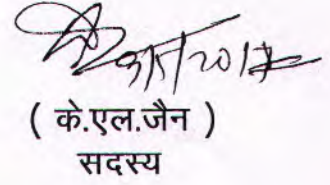 ( के.एल.जैन )
सदस्य